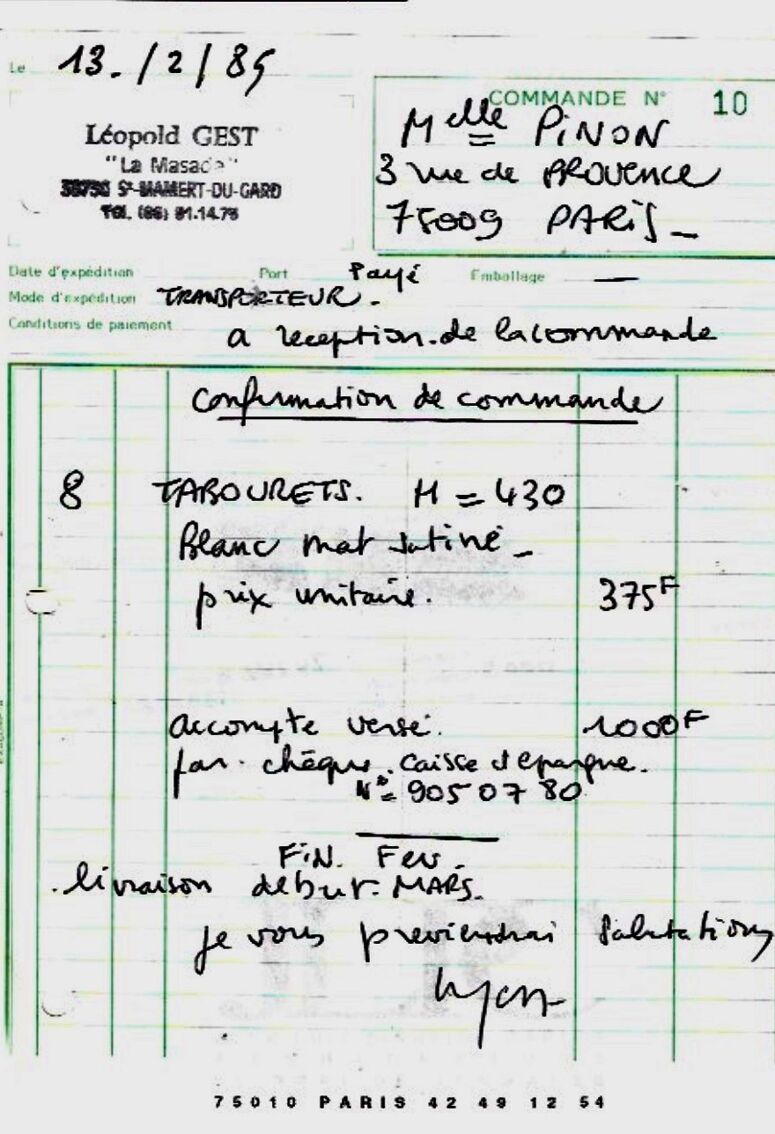 Le 13./2/85
COMMANDE N° 10
Léopold GEST
"La Masade"
St-MAMERT-DU-GARD
Tél. (66) 81.14.75
Melle PINON
3 rue de PROVENCE
75009 PARIS_
Date d'expédition Port Payé Emballage —
Mode d'expédition TRANSPORTEUR.
Conditions de paiement a reception.de la commande
Confirmation de commande
8 TABOURETS. H = 430
Blanc mat satiné_
prix unitaire. 375F
accompte versé. 1000F
par. chèque. caisse d'epargne.
N°= 905 07 80
FIN. Fev.
.livraison debut. MARS.
je vous previendrai Salutations
75010 PARIS 42 49 12 54